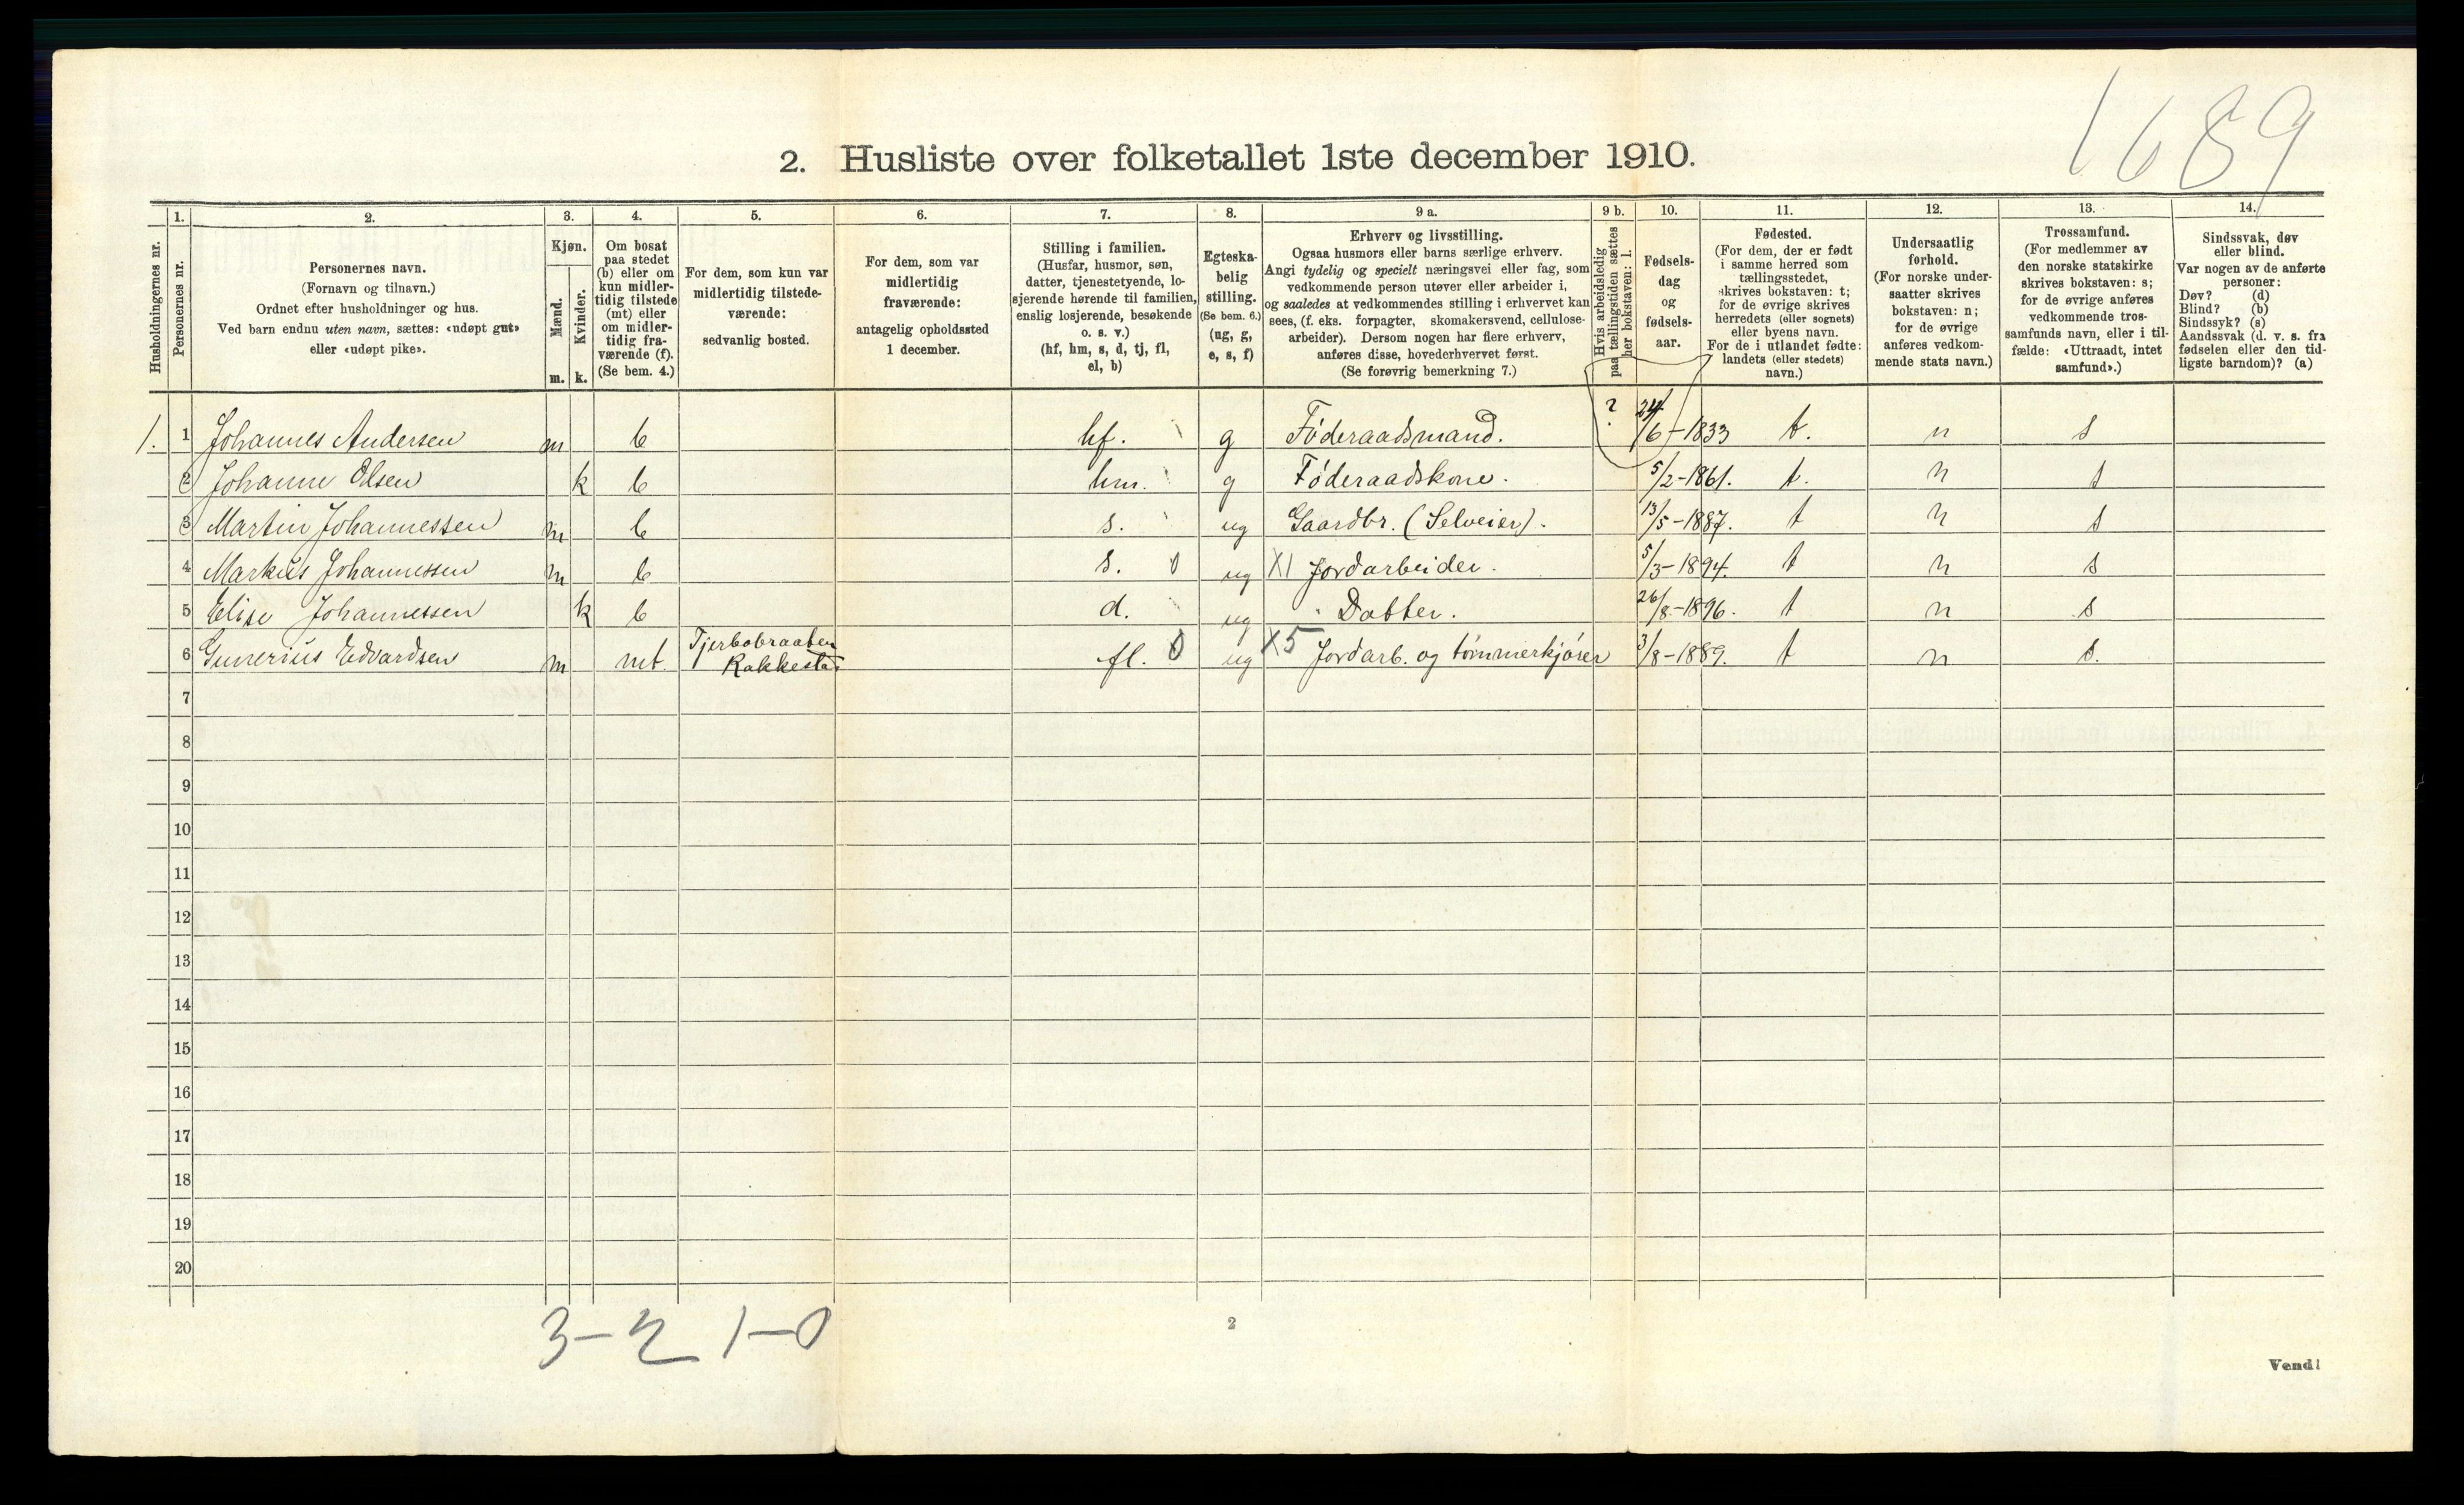 1689
2. Husliste over folketallet 1ste december 1910.
Husholdningernes nr.
1.
Personernes nr.
2.
Personernes navn.
(Fornavn og tilnavn.)
Ordnet efter husholdninger og hus.
Ved barn endnu uten navn, sættes: «udøpt gut»
eller «udøpt pike».
3.
Kjøn.
Mænd.
m.
Kvinder.
k.
4.
Om bosat
paa stedet
(b) eller om
kun midler-
tidig tilstede
(mt) eller
om midler-
tidig fra-
værende (f).
(Se bem. 4.)
5.
For dem, som kun var
midlertidig tilstede-
værende:
sedvanlig bosted.
6.
For dem, som var
midlertidig
fraværende:
antagelig opholdssted
1 december.
7.
Stilling i familien.
(Husfar, husmor, søn,
datter, tjenestetyende, lo-
sjerende hørende til familien,
enslig losjerende, besøkende
o. s. v.)
(hf, hm, s, d, tj, fl,
el, b)
8.
Egteska-
belig
stilling.
(Se bem. 6.)
(ug, g,
e, s, f)
9 a.
Erhverv og livsstilling.
Ogsaa husmors eller barns særlige erhverv.
Angi tydelig og specielt næringsvei eller fag, som
vedkommende person utøver eller arbeider i,
og saaledes at vedkommendes stilling i erhvervet kan
sees, (f. eks. forpagter, skomakersvend, cellulose-
arbeider). Dersom nogen har flere erhverv,
anføres disse, hovederhvervet først.
(Se forøvrig bemerkning 7.)
9 b.
Hvis arbeidsledig
paa tællingstiden sættes
her bokstaven: l.
10.
Fødsels-
dag
og
fødsels-
aar.
11.
Fødested.
(For dem, der er født
i samme herred som
tællingsstedet,
skrives bokstaven: t;
for de øvrige skrives
herredets (eller sognets)
eller byens navn.
For de i utlandet fødte:
landets (eller stedets)
navn.)
12.
Undersaatlig
forhold.
(For norske under-
saatter skrives
bokstaven: n;
for de øvrige
anføres vedkom-
mende stats navn.)
13.
Trossamfund.
(For medlemmer av
den norske statskirke
skrives bokstaven: s;
for de øvrige anføres
vedkommende tros-
samfunds navn, eller i til-
fælde: «Uttraadt, intet
samfund».)
14.
Sindssvak, døv
eller blind.
Var nogen av de anførte
personer:
Døv? (d)
Blind? (b)
Sindssyk? (s)
Aandssvak (d. v. s. fra
fødselen eller den tid-
ligste barndom)? (a)
1. 1 Johannes Andersen m b hf. g Föderaadsmand. ? 24/6-1833 t. n s
2 Johanne Olsen k b hm. g Föderaadskone. 5/2-1861. t. n s
3 Martin Johannessen m b s. ug Gaardbr. (Selveier). 13/5-1887. t n s
4 Markus Johannessen m b s. 0 ug X1 Jordarbeider. 5/3-1894. t n s
5 Elise Johannessen k b d. ug Datter. 26/8-1896. t n s
6 Gunerius Edvardsen m mt Tjerbobraaten
Rakkestad fl. 0 ug X5 Jordarb. og tömmerkjörer 3/8-1889. t n s.
7
8
9
10
11
12
13
14
15
16
17
18
19
20
3-2 1-0
2
Vend!